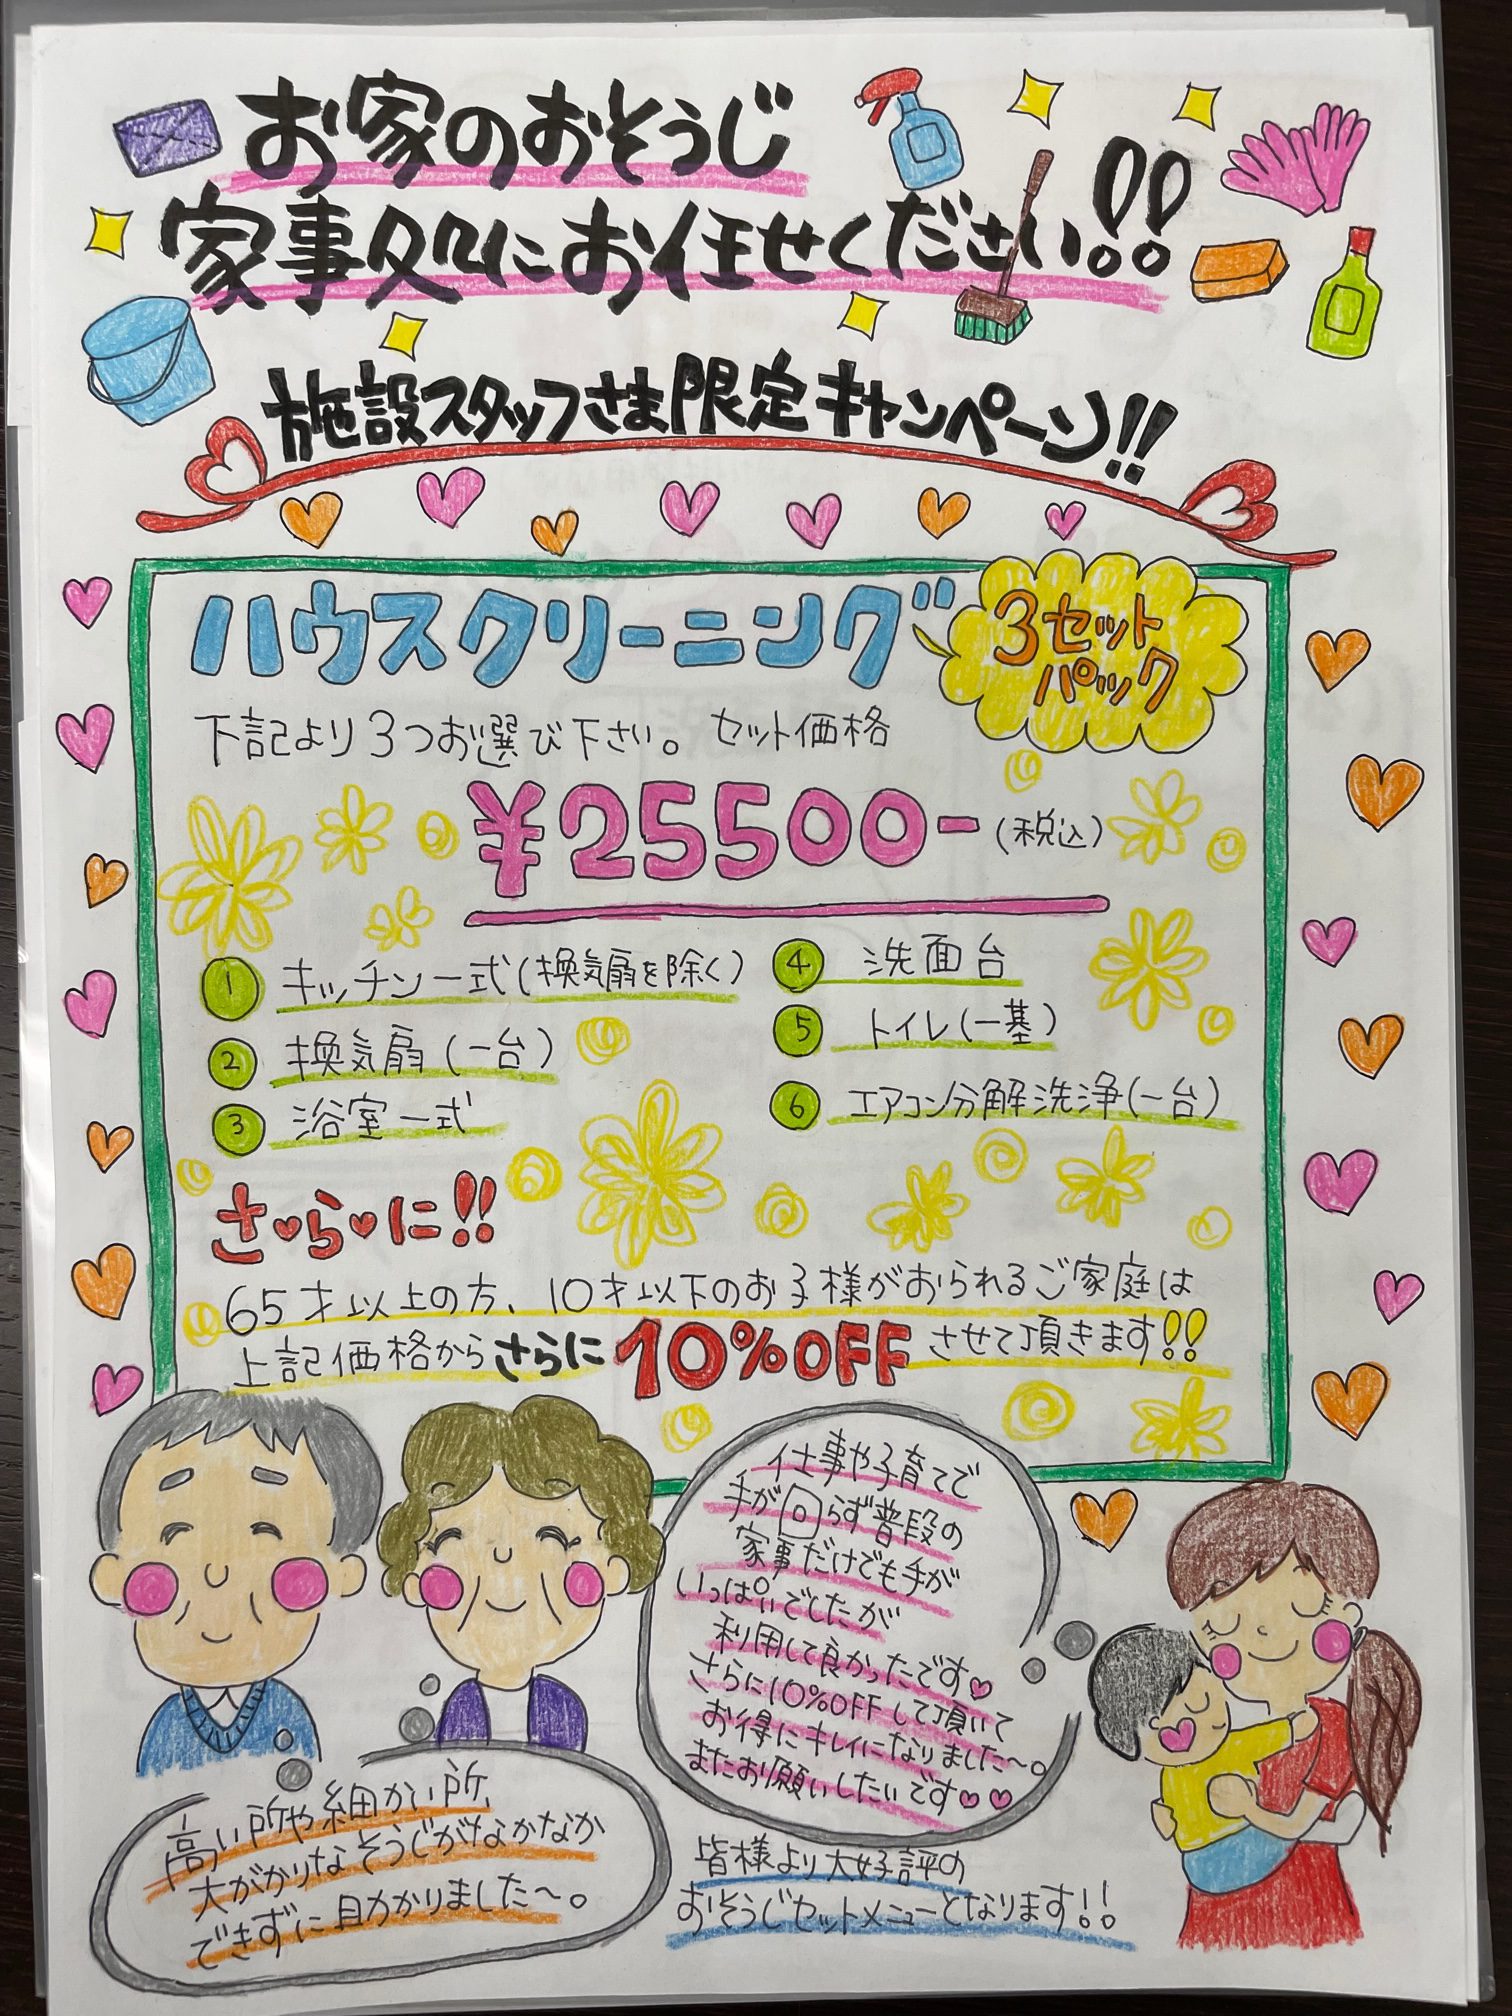 お家のおそうじ
家事処にお任せください!!
施設スタッフさま限定キャンペーン!!
ハウスクリーニング
3セット
パック
下記より3つお選び下さい。 セット価格
¥25500-(税込)
① キッチン一式(換気扇を除く)
② 換気扇(一台)
③ 浴室一式
④ 洗面台
⑤ トイレ(一基)
⑥ エアコン分解洗浄(一台)
さ♥ら♥に!!
65才以上の方、10才以下のお子様がおられるご家庭は
上記価格からさらに10%OFFさせて頂きます!!
仕事や子育てで
手が回らず普段の
家事だけでも手が
いっぱいでしたが
利用して良かったです♡
さらに10%OFFして頂いて
お得にキレイになりました〜。
またお願いしたいです♡♡
高い所や細かい所、
大がかりなそうじがなかなか
できずに助かりました〜。
皆様より大好評の
おそうじセットメニューとなります!!